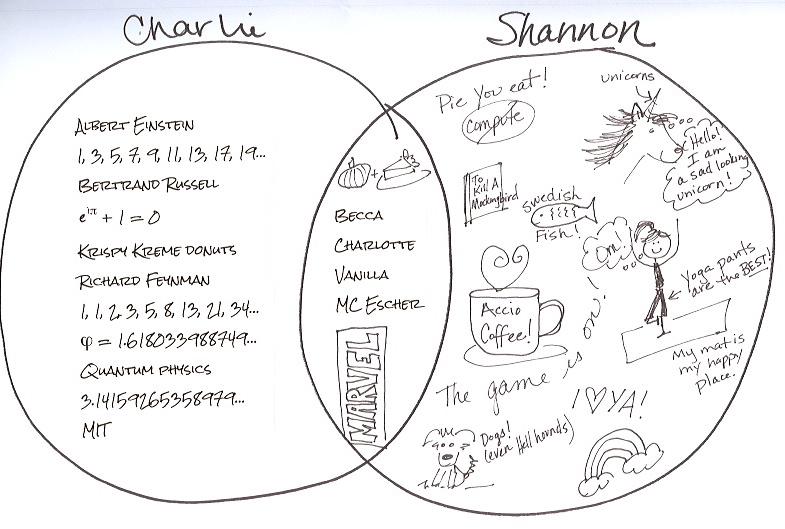 Charlie
Shannon
Albert Einstein
1, 3, 5, 7, 9, 11, 13, 17, 19...
Bertrand Russell
e^iπ + 1 = 0
Krispy Kreme Donuts
Richard Feynman
1, 1, 2, 3, 5, 8, 13, 21, 34...
φ = 1.618033988749...
Quantum Physics
3.14159265358979...
MIT
+
Becca
Charlotte
Vanilla
MC Escher
MARVEL
Pie you eat!
Compute
unicorns
Hello!
I am
a sad looking
unicorn!
To
Kill A
Mockingbird
Swedish
Fish!
Om!
Yoga pants
are the BEST!
Accio
Coffee!
My mat is
my happy
place.
The game is on!
I ♥ YA!
Dogs!
(even Hell hounds)